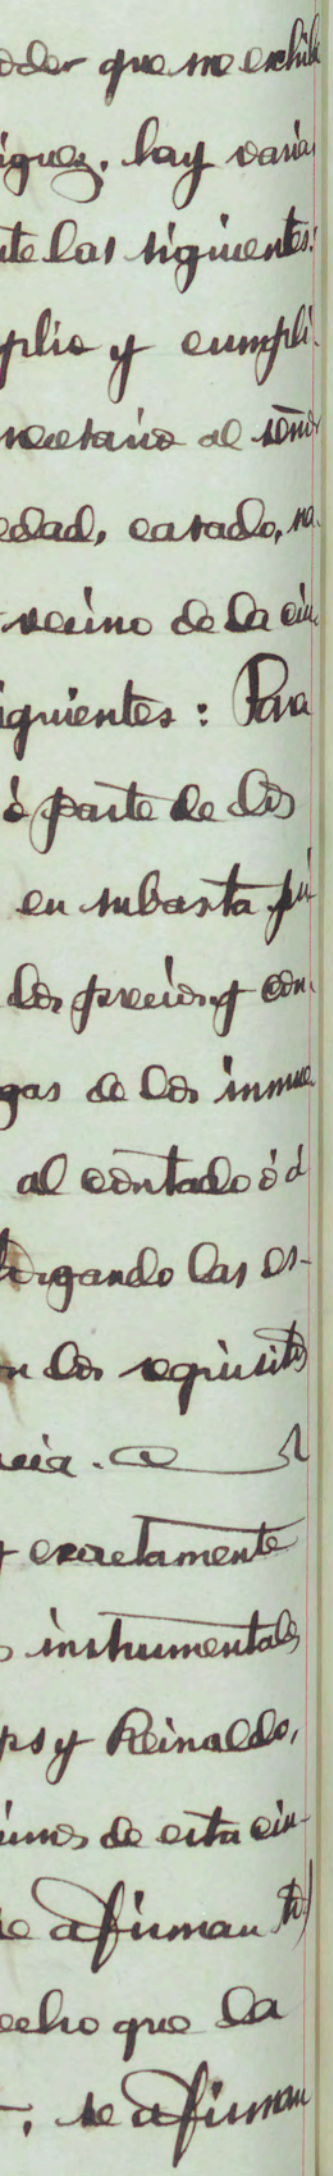 oder que me exhibe
íguez, hay varias
te las siguientes:
plio y cumpli-
cretario al señor
edad, casado, na-
vecino de la ciu-
iguientes: Para
ó parte de los
en subasta pú
los precios y con-
gas de los inmue
al contado ó á
torgando las es-
n los requisitos
ncia.
y exactamente
s instrumentales
ps y Reinaldo,
inos de esta ciu-
se afirman
echo que la
, se afirman